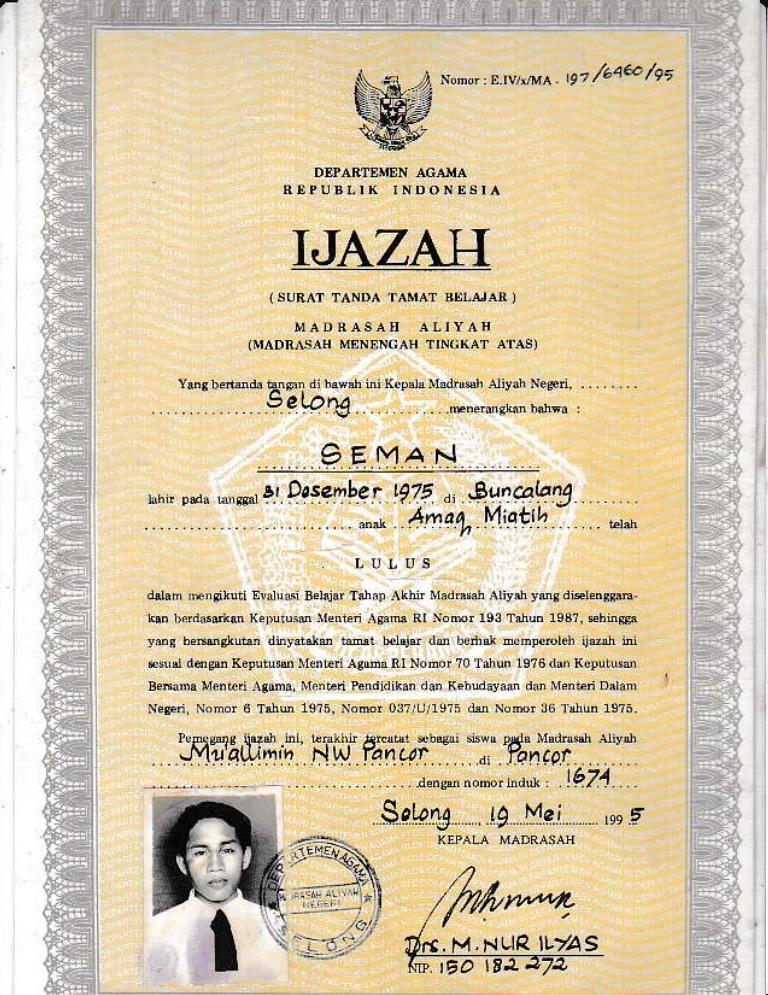 Nomor : E.IV/x/MA - 197/6460/95
DEPARTEMEN AGAMA
REPUBLIK INDONESIA
IJAZAH
( SURAT TANDA TAMAT BELAJAR )
MADRASAH ALIYAH
(MADRASAH MENENGAH TINGKAT ATAS)
Yang bertanda tangan di bawah ini Kepala Madrasah Aliyah Negeri, ........
Selong menerangkan bahwa :
SEMAN
lahir pada tanggal 31 Desember 1975 di Buncalang
anak Amaq Miatih telah
LULUS
dalam mengikuti Evaluasi Belajar Tahap Akhir Madrasah Aliyah yang diselenggara-
kan berdasarkan Keputusan Menteri Agama RI Nomor 193 Tahun 1987, sehingga
yang bersangkutan dinyatakan tamat belajar dan berhak memperoleh ijazah ini
sesuai dengan Keputusan Menteri Agama RI Nomor 70 Tahun 1976 dan Keputusan
Bersama Menteri Agama, Menteri Pendidikan dan Kebudayaan dan Menteri Dalam
Negeri, Nomor 6 Tahun 1975, Nomor 037/U/1975 dan Nomor 36 Tahun 1975.
Pemegang ijazah ini, terakhir tercatat sebagai siswa pada Madrasah Aliyah
Mu'allimin NW Pancor di Pancor
dengan nomor induk : 1674
Selong, 19 Mei 1995
KEPALA MADRASAH
DEPARTEMEN AGAMA
ALIYAH
NEGERI
SELONG
Drs. M. NUR ILYAS
NIP. 150 182 272